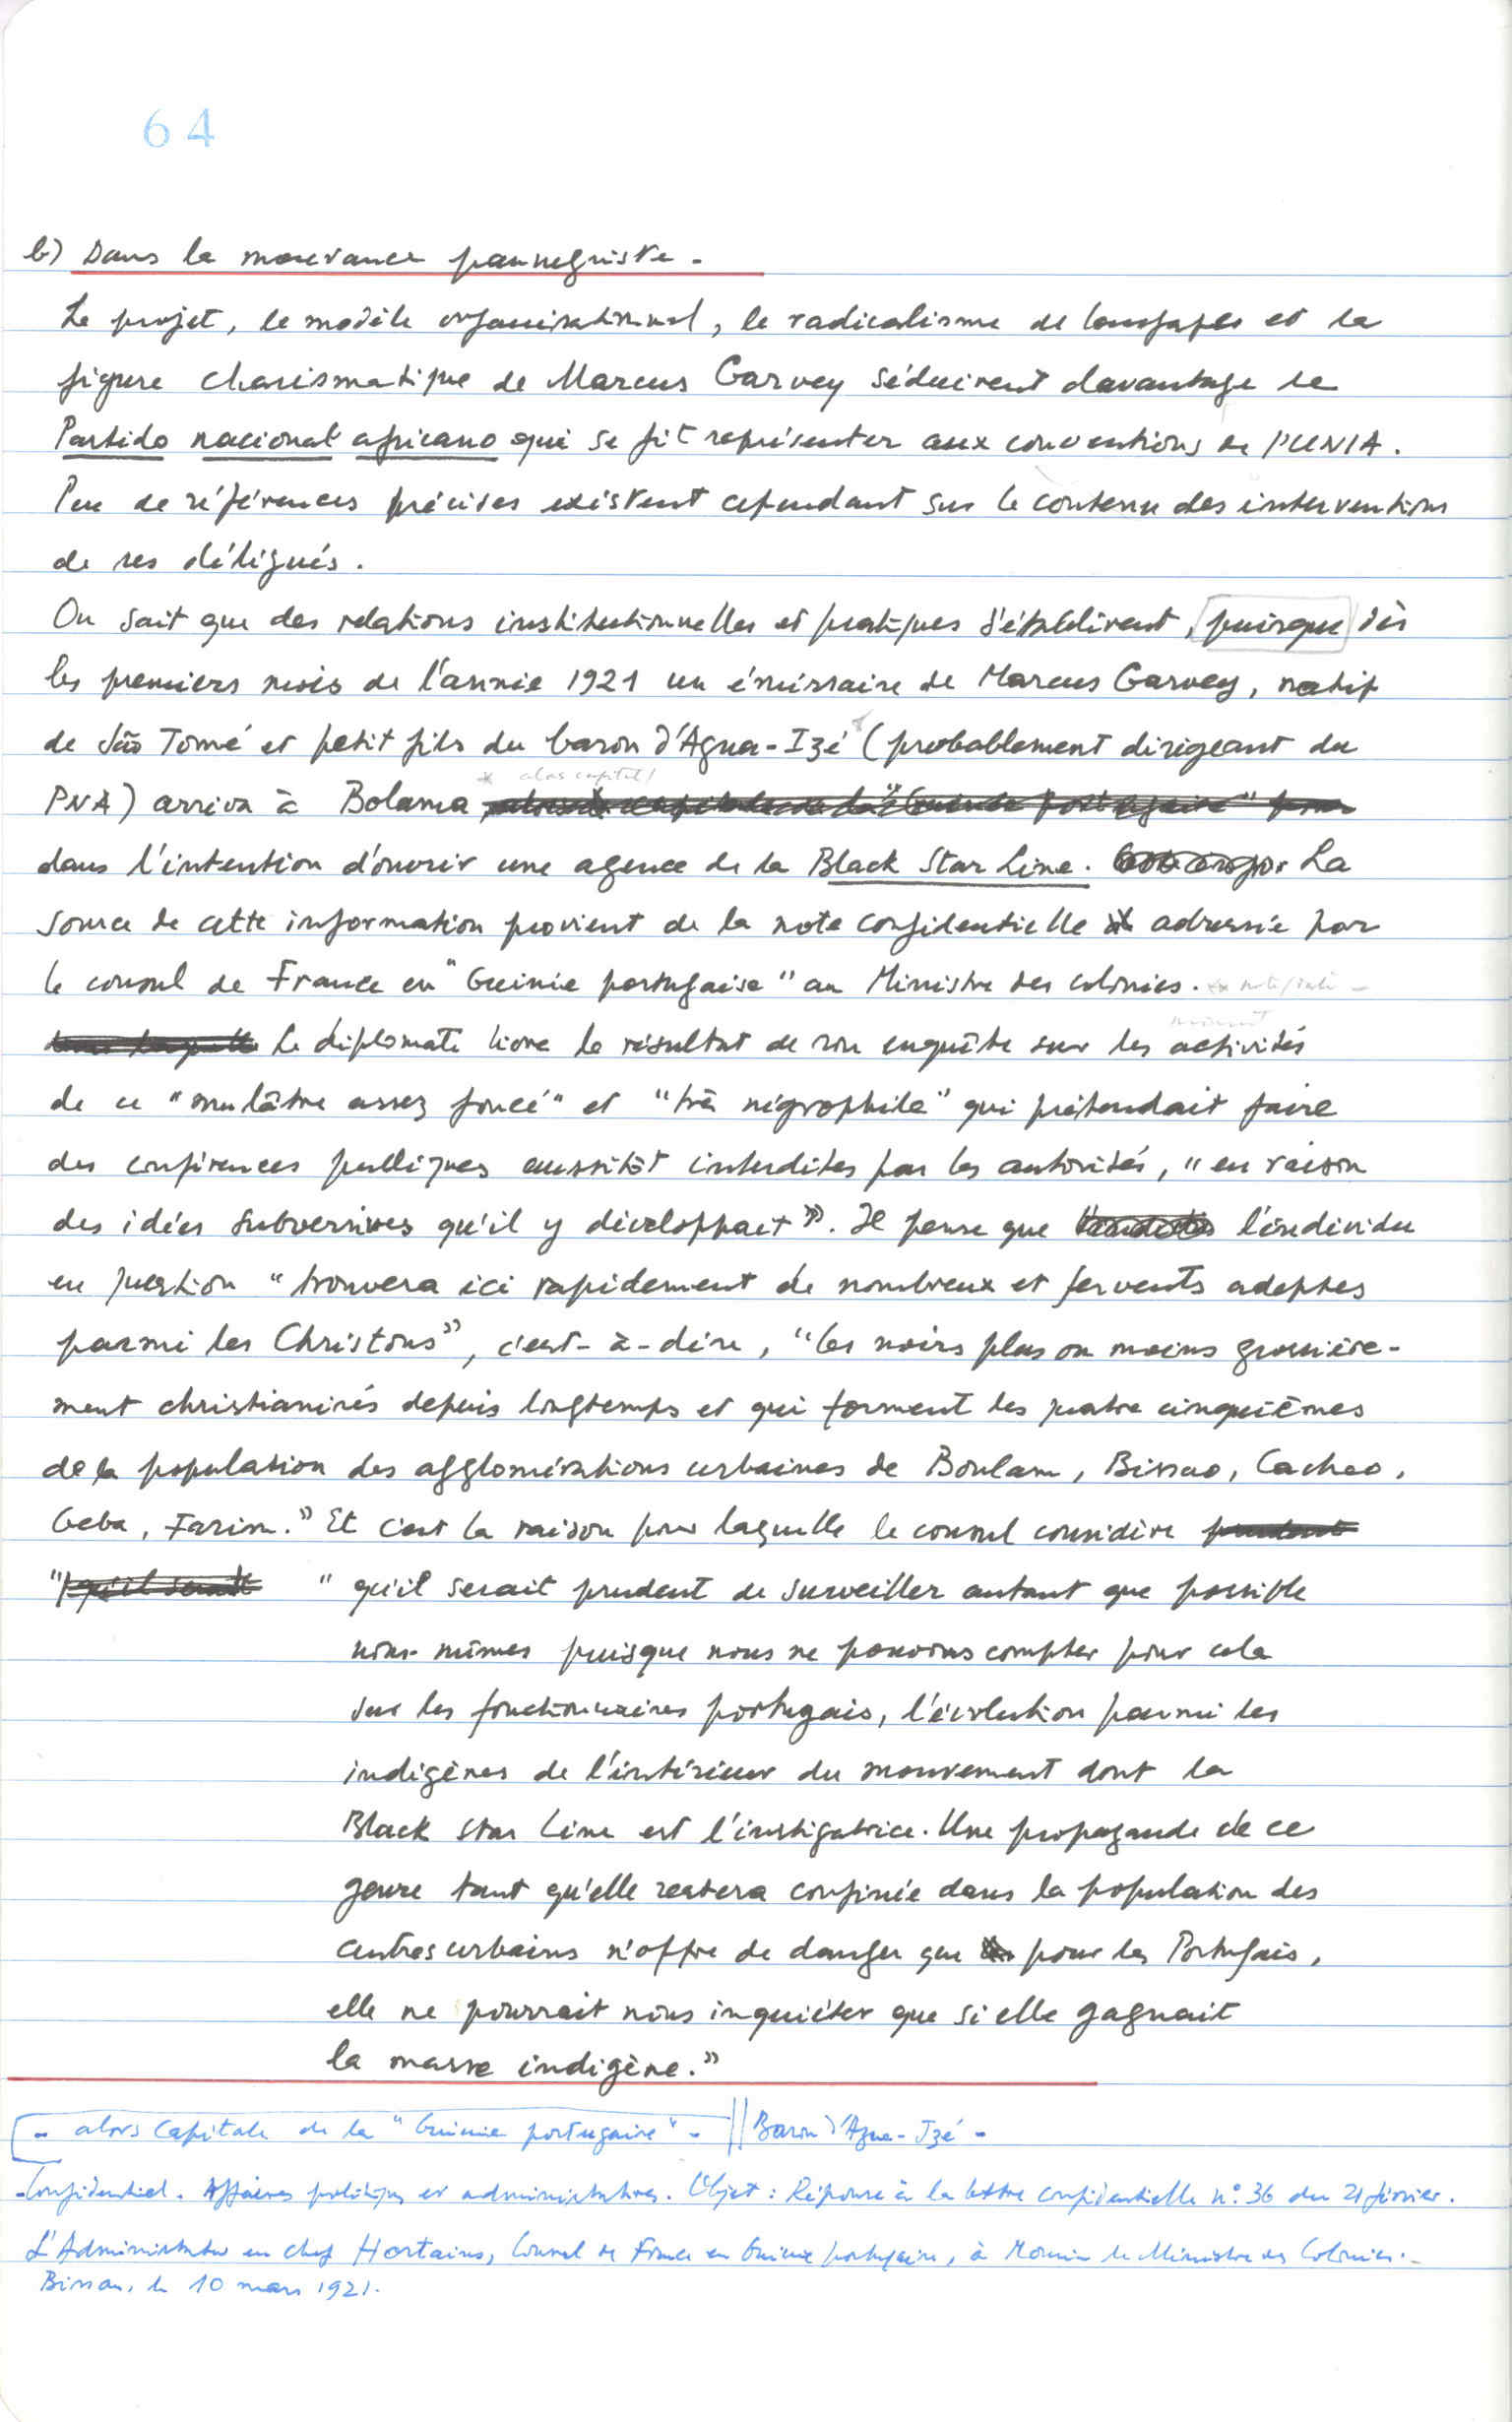 64
b) Dans la mouvance pannegriste.
Le projet, le modèle organisationnel, le radicalisme de langages et la
figure charismatique de Marcus Garvey séduirent davantage le
Partido nacional africano qui se fit représenter aux conventions de l'UNIA.
Peu de références précises existent cependant sur le contenu des interventions
de ses délégués.
On sait que des relations institutionnelles et pratiques s'établirent, puisque dès
les premiers mois de l'année 1921 un émissaire de Marcus Garvey, natif
de São Tomé et petit fils du baron d'Agua-Izé (probablement dirigeant du
* alors capitale
PNA) arriva à Bolama alors la capitale de la "Guinée Portugaise" pour
dans l'intention d'ouvrir une agence de la Black Star Line. La
source de cette information provient de la note confidentielle adressée par
le consul de France en "Guinée portugaise" au Ministre des colonies.
dans laquelle Le diplomate livre le résultat de son enquête sur les activités
de ce "mulâtre assez foncé" et "très négrophile" qui prétendait faire
des conférences publiques aussitôt interdites par les autorités, "en raison
des idées subversives qu'il y développait". Il pense que l'individu
en question "trouvera ici rapidement de nombreux et fervents adeptes
parmi les Christons", c'est-à-dire, "les noirs plus ou moins grossière-
ment christianisés depuis longtemps et qui forment les quatre cinquièmes
de la population des agglomérations urbaines de Boulam, Bissao, Cacheo,
Geba, Farim." Et c'est la raison pour laquelle le consul considère prudent
"qu'il serait " qu'il serait prudent de surveiller autant que possible
nous-mêmes puisque nous ne pouvons compter pour cela
sur les fonctionnaires portugais, l'évolution parmi les
indigènes de l'intérieur du mouvement dont la
Black Star Line est l'instigatrice. Une propagande de ce
genre tant qu'elle restera confinée dans la population des
centres urbains n'offre de danger que pour les Portugais,
elle ne pourrait nous inquiéter que si elle gagnait
la masse indigène."
- alors Capitale de la "Guinée portugaise" - || Baron d'Agua-Izé -
- Confidentiel. Affaires politiques et administratives. Objet : Réponse à la lettre confidentielle n° 36 du 21 février.
L'Administrateur en chef Hostains, Consul de France en Guinée portugaise, à Monsieur le Ministre des Colonies. -
Bissau, le 10 mars 1921.